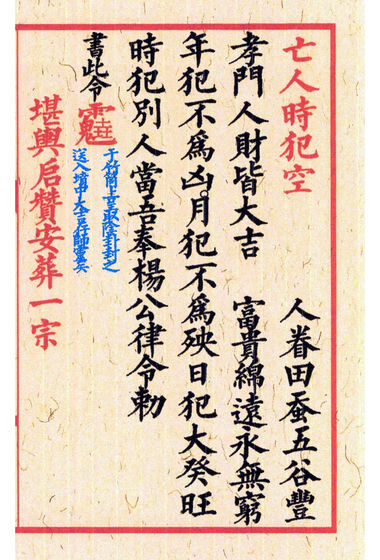 亡人時犯空　人眷田蚕五谷豐
孝門人財皆大吉　富貴綿遠永無窮
年犯不為凶月犯不為殃日犯大癸旺
時犯別人當吾奉楊公律令勅
書此令
于竹筒上
封之
送入墳中大吉
堪輿启贊安葬一宗